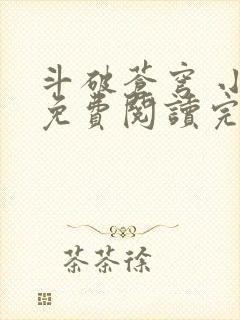 斗破蒼穹 小
免費閱讀完
茶茶徐